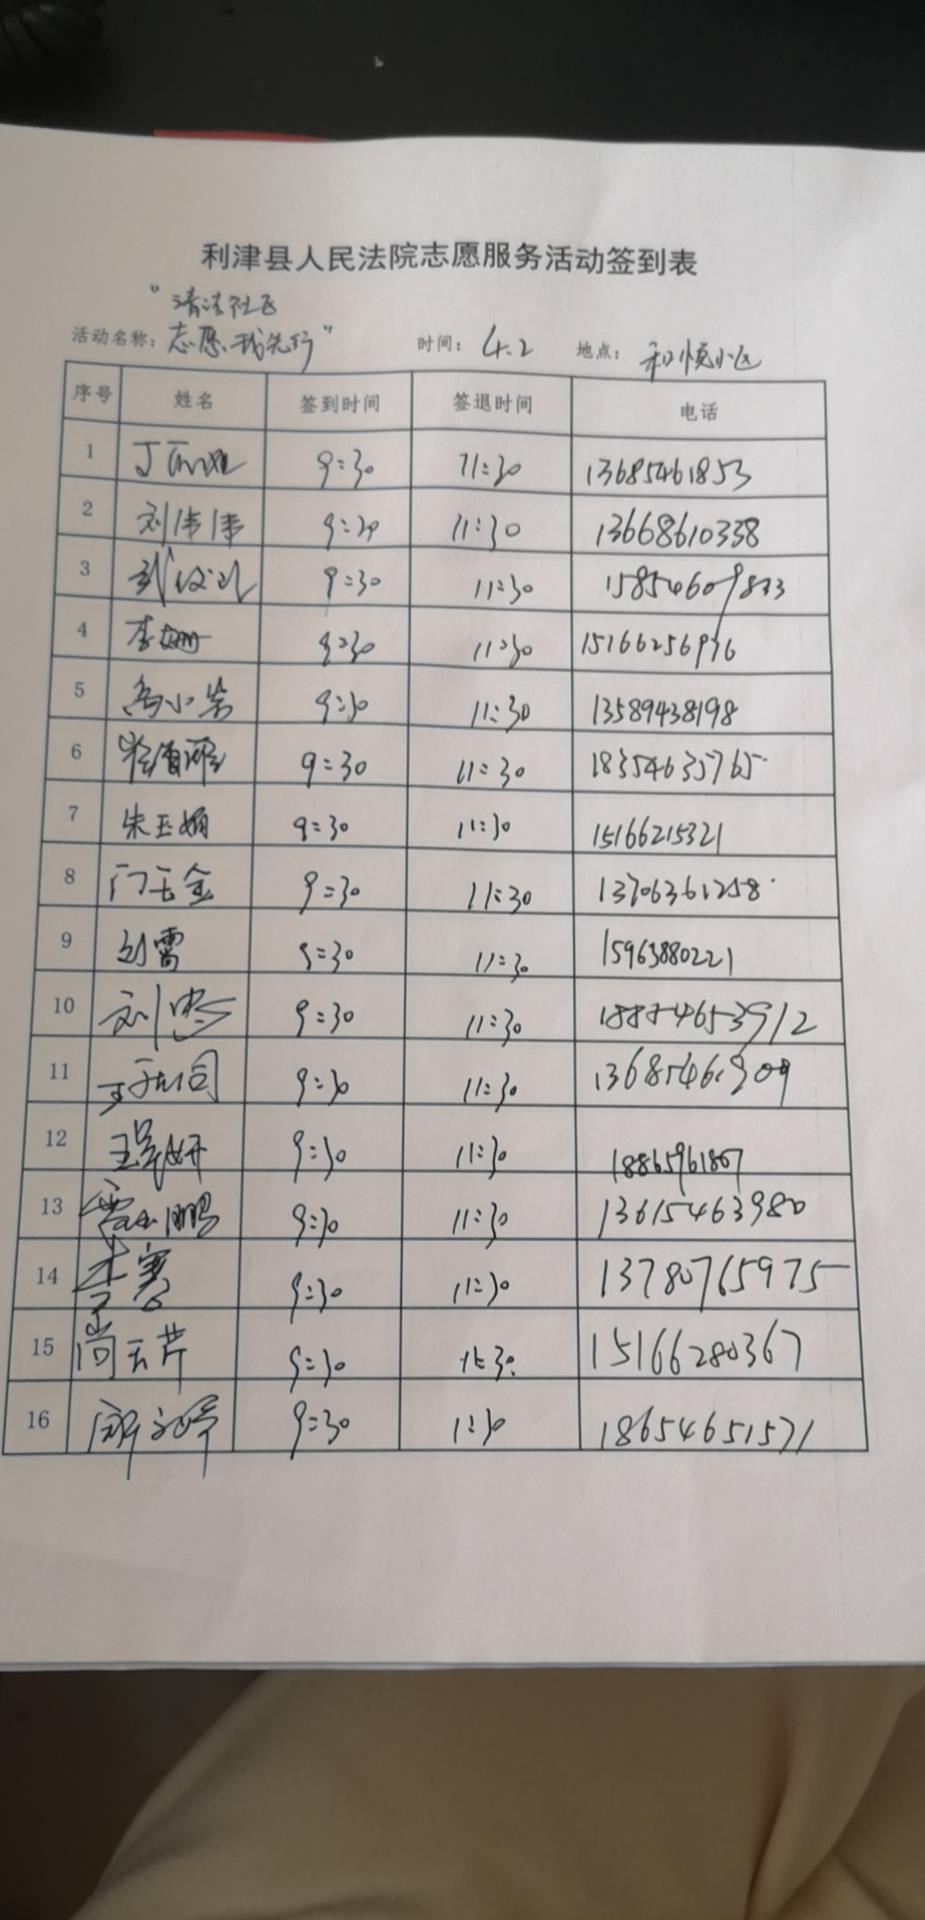 利津县人民法院志愿服务活动签到表
"清洁社区
活动名称: 志愿我先行" 时间: 4.2 地点: 和悦小区
序号 姓名 签到时间 签退时间 电话
1 丁 9:30 11:30 13685461853
2 刘伟伟 9:30 11:30 13668610338
3 武 9:30 11:30
4 李姗 9:30 11:30
5 小荣 9:30 11:30 13589438198
6 9:30 11:30 18354635765
7 朱玉娟 9:30 11:30 15166215321
8 门玉金 9:30 11:30 13706361258
9 刘雷 9:30 11:30 15963880221
10 刘 9:30 11:30 18854653912
11 9:30 11:30
12 王昊妍 9:30 11:30 18865961867
13 鹏 9:30 11:30 13615463980
14 李赛 9:30 11:30 13780765975
15 尚云芹 9:30 11:30 15166280367
16 9:30 11:30 18654651571